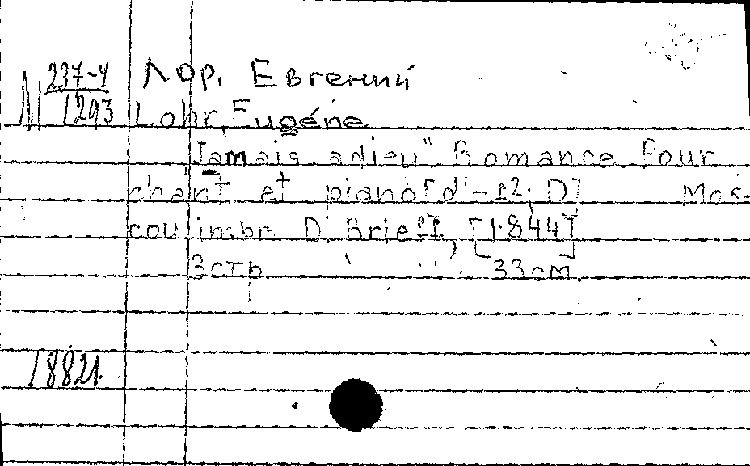 М 237-4
1293
Лор, Евгений
Lohr, Eugéne
"Jamais adieu" Romance pour
chant et piano [d'-12; D] Mos-
cou, imbr. D. Brieff, [1844]
3 стр 33 см
18821